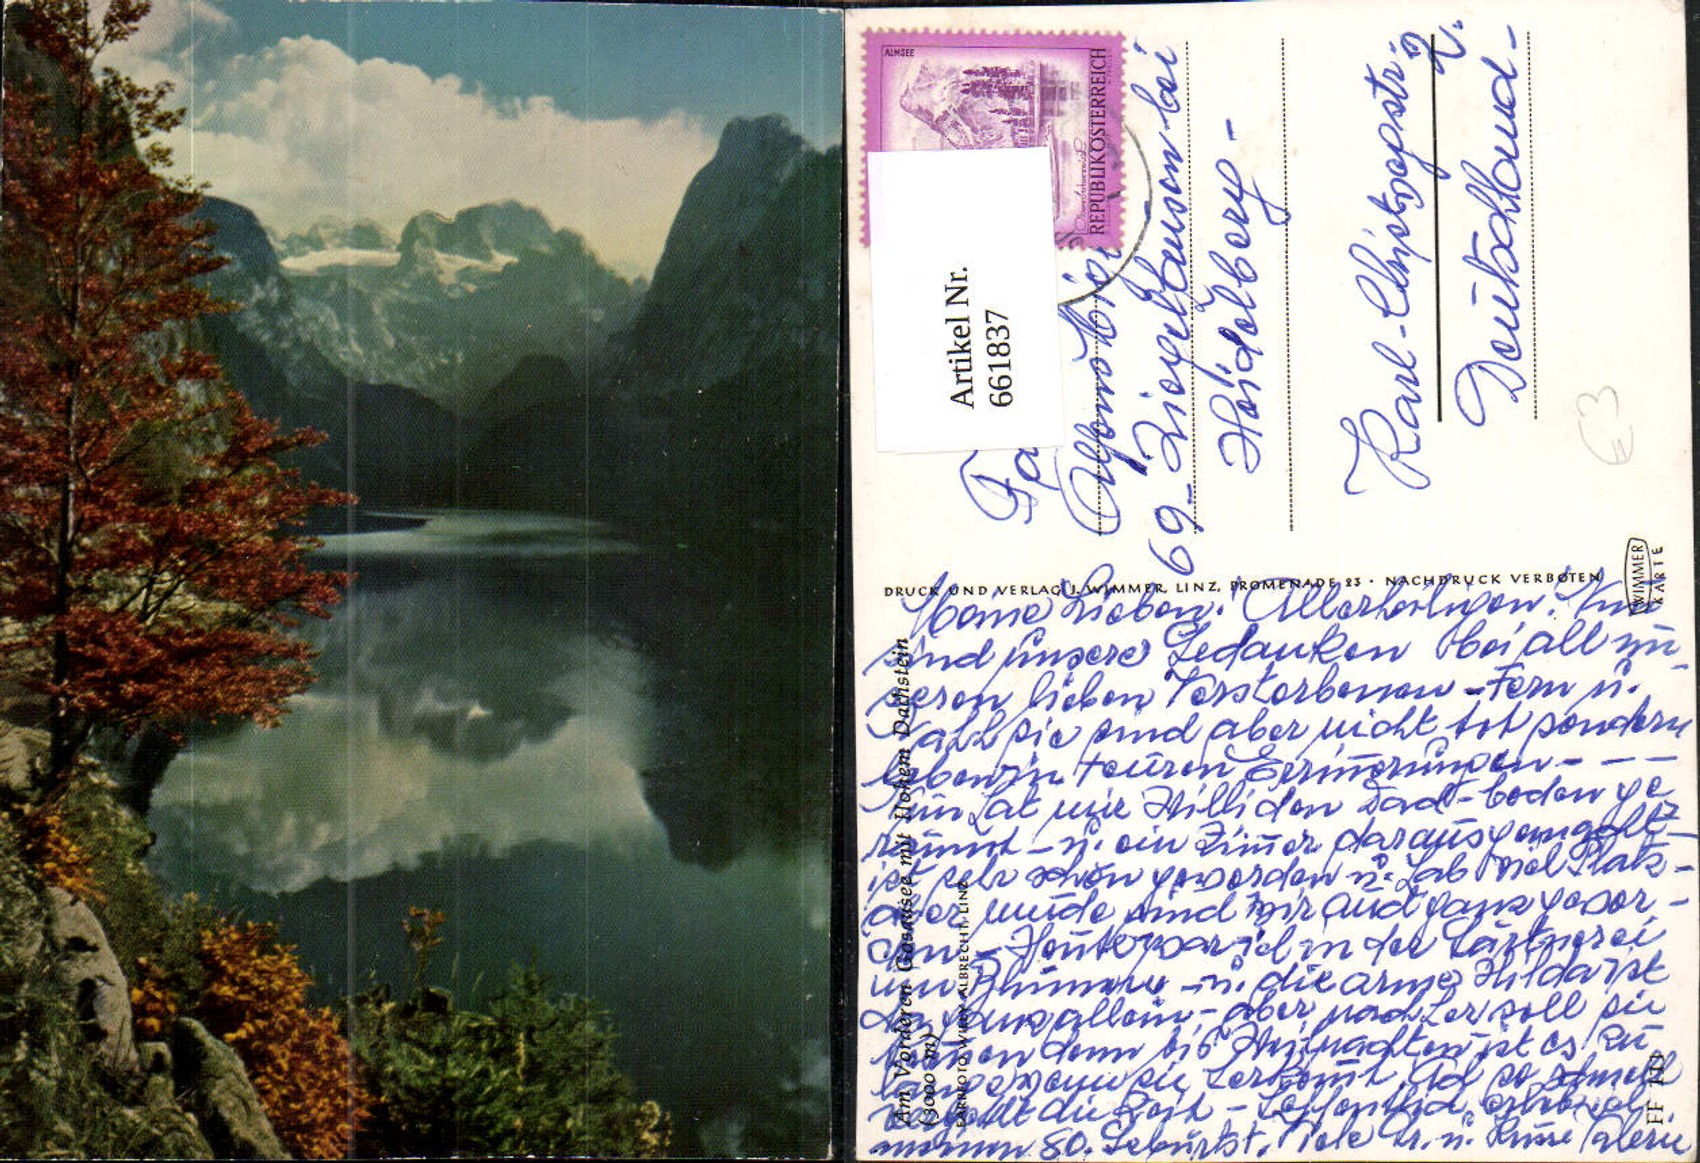 ALMSEE
REPUBLIK ÖSTERREICH
Artikel Nr.
661837
69 - Ziegelhausen bei
Heidelberg -
Karl-Christ
2.
Deutschland -
€3
Am Vorderen Gosausee mit Hohem Dachstein
(3000 m)
FARBFOTO WIRK. ALBRECHT, LINZ
FF
DRUCK UND VERLAG J. WIMMER, LINZ, PROMENADE 23 · NACHDRUCK VERBOTEN
WIMMER
KARTE
Meine Lieben! Allerheiligen! Nun
sind unsere Gedanken bei all un-
seren lieben Verstorbenen - Fern u.
nah sie sind aber nicht tot sondern
leben in teuren Erinnerungen - - -
Nun hat mir Willi den Dachboden ge
räumt - u. ein Zimmer daraus
ist sehr schön geworden u. hab viel Platz -
aber müde sind wir auch ganz gewor -
den - Heute war ich in der Gärtnerei
um Blumen - u. die arme Hilda ist
da ganz allein - aber nachher soll sie
kommen denn bis Weihnachten ist es zu
lange wenn sie herkommt. Ach so schnell
vergeht die Zeit - Hoffentlich erleb ich
meinen 80. Geburtst. Viele Gr. u. Küsse